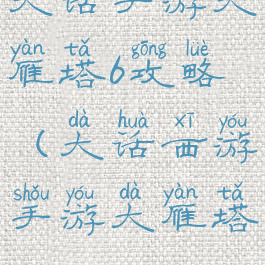 大话手游大
yàn tǎ gōng lüè
雁塔6攻略
dà huà xī yóu
（大话西游
shǒu yóu dà yàn tǎ
手游大雁塔